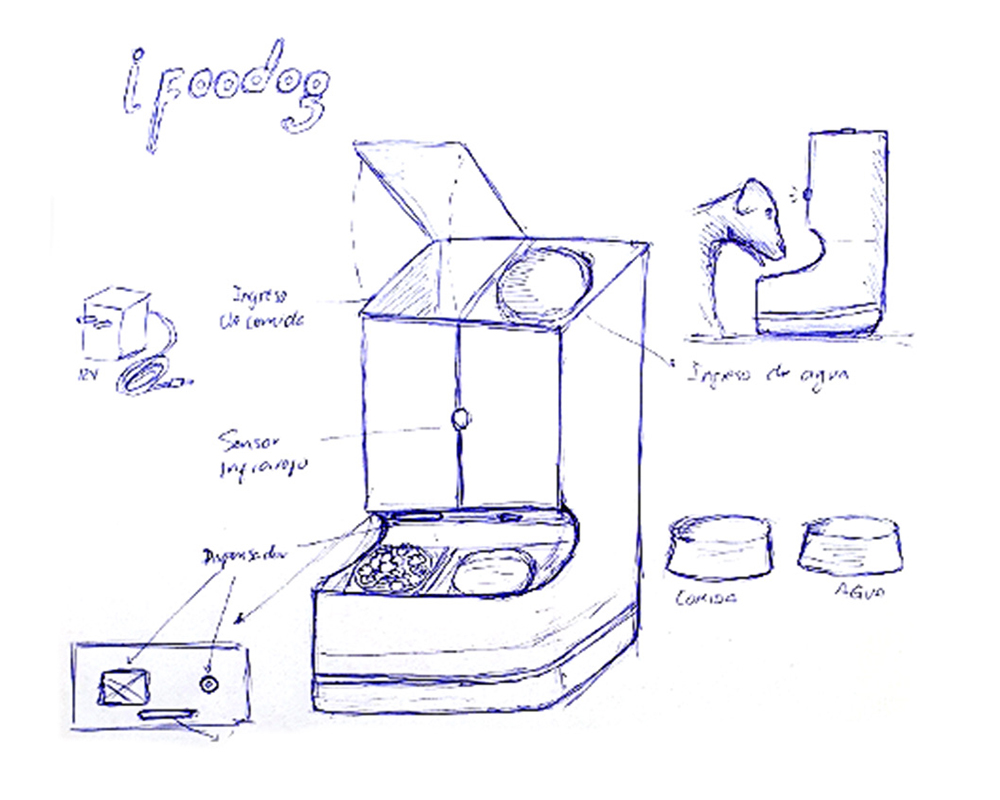 ifoodog
Ingreso
de comida
12V
Ingreso de agua
Sensor
Infrarojo
Dispensador
COMIDA
AGUA